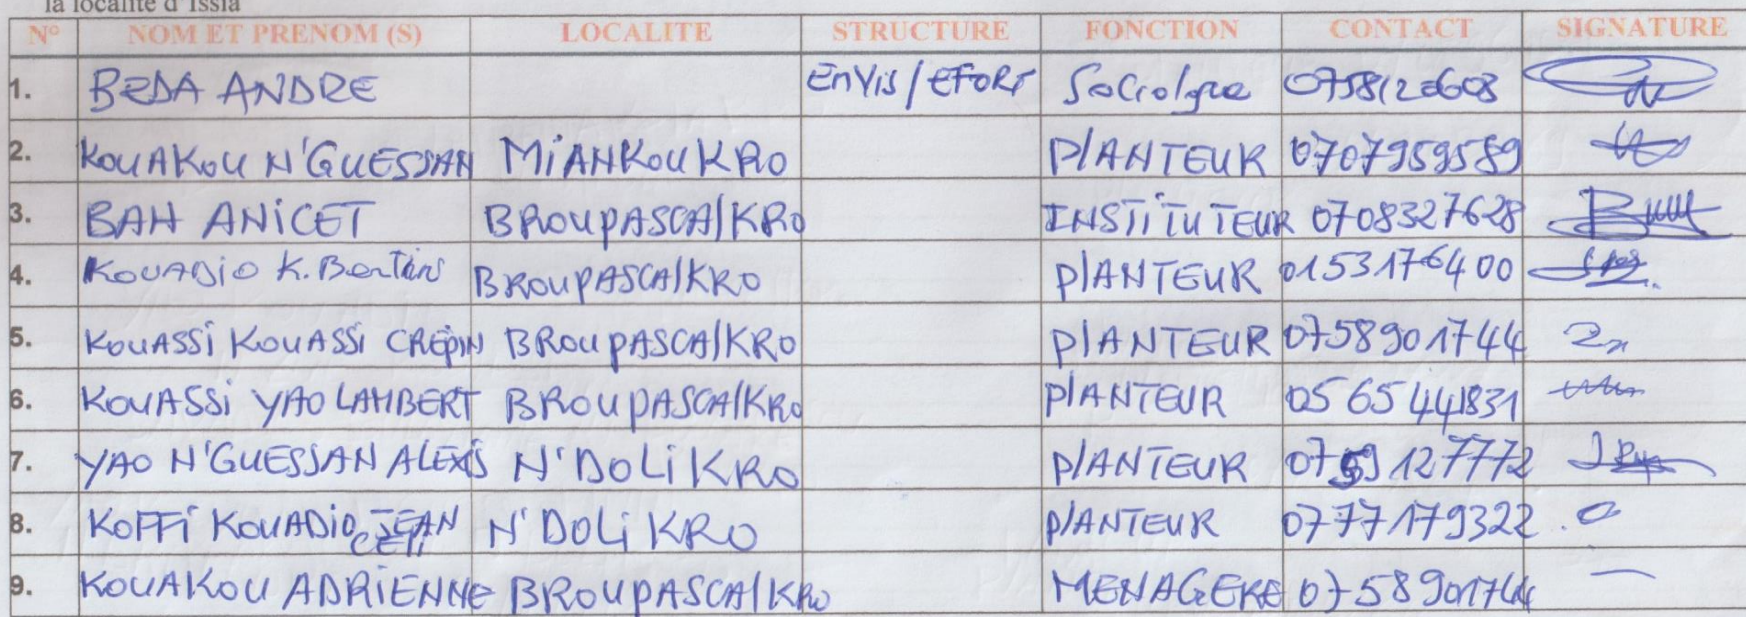 la localité d'Issia
N° NOM ET PRENOM (S) LOCALITE STRUCTURE FONCTION CONTACT SIGNATURE
1. BEDA ANDRE EnVis/EFORT Sociologue 0758120608
2. KOUAKOU N'GUESSAN MIANKOUKRO PLANTEUR 0707959589
3. BAH ANICET BROUPASCALKRO INSTITUTEUR 0708327628
4. KOUADIO K. Bertin BROUPASCALKRO PLANTEUR 0153176400
5. KOUASSI KOUASSI CREPIN BROUPASCALKRO PLANTEUR 0758901744
6. KOUASSI YAO LAMBERT BROUPASCALKRO PLANTEUR 0565441831
7. YAO N'GUESSAN ALEXIS N'DOLIKRO PLANTEUR 0759127772
8. KOFFI KOUADIO JEAN N'DOLIKRO PLANTEUR 0777179322
9. KOUAKOU ADRIENNE BROUPASCALKRO MENAGERE 0758901744